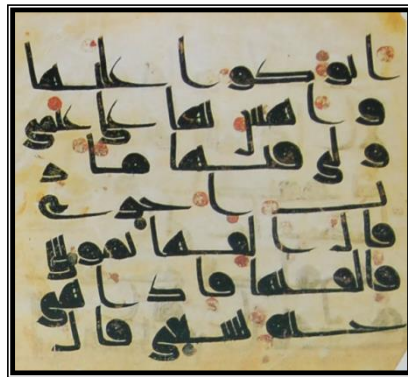 اتوكوا عليها
واهش بها على غنمي
ولى فيها مار
ب اخرى
قال القها يموسى
فالقيها فاذا هي
حية تسعى قال